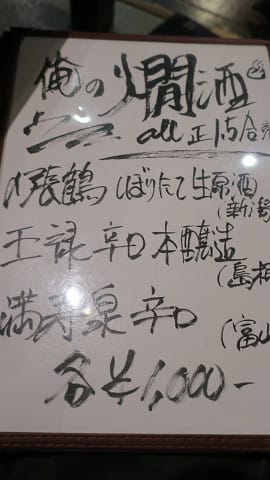 俺の燗酒♨
all 正1.5合
〆張鶴 しぼりたて生原酒
(新潟
王祿 辛口 本醸造
(島根
満寿泉 辛口
(富山
各¥1,000-